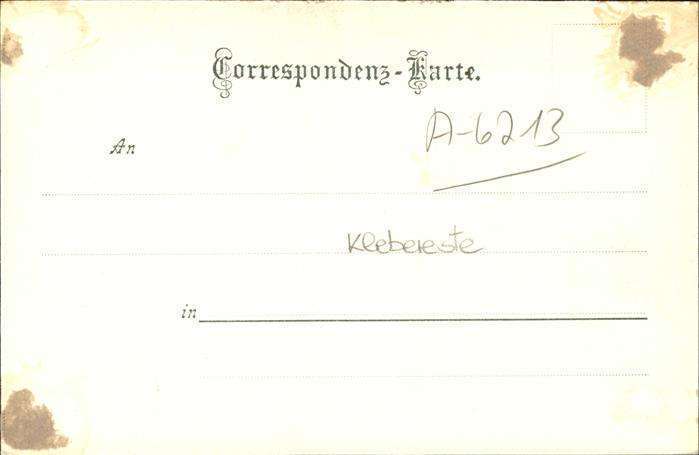 Correspondenz-Karte.
A-6213
An
Klebereste
in